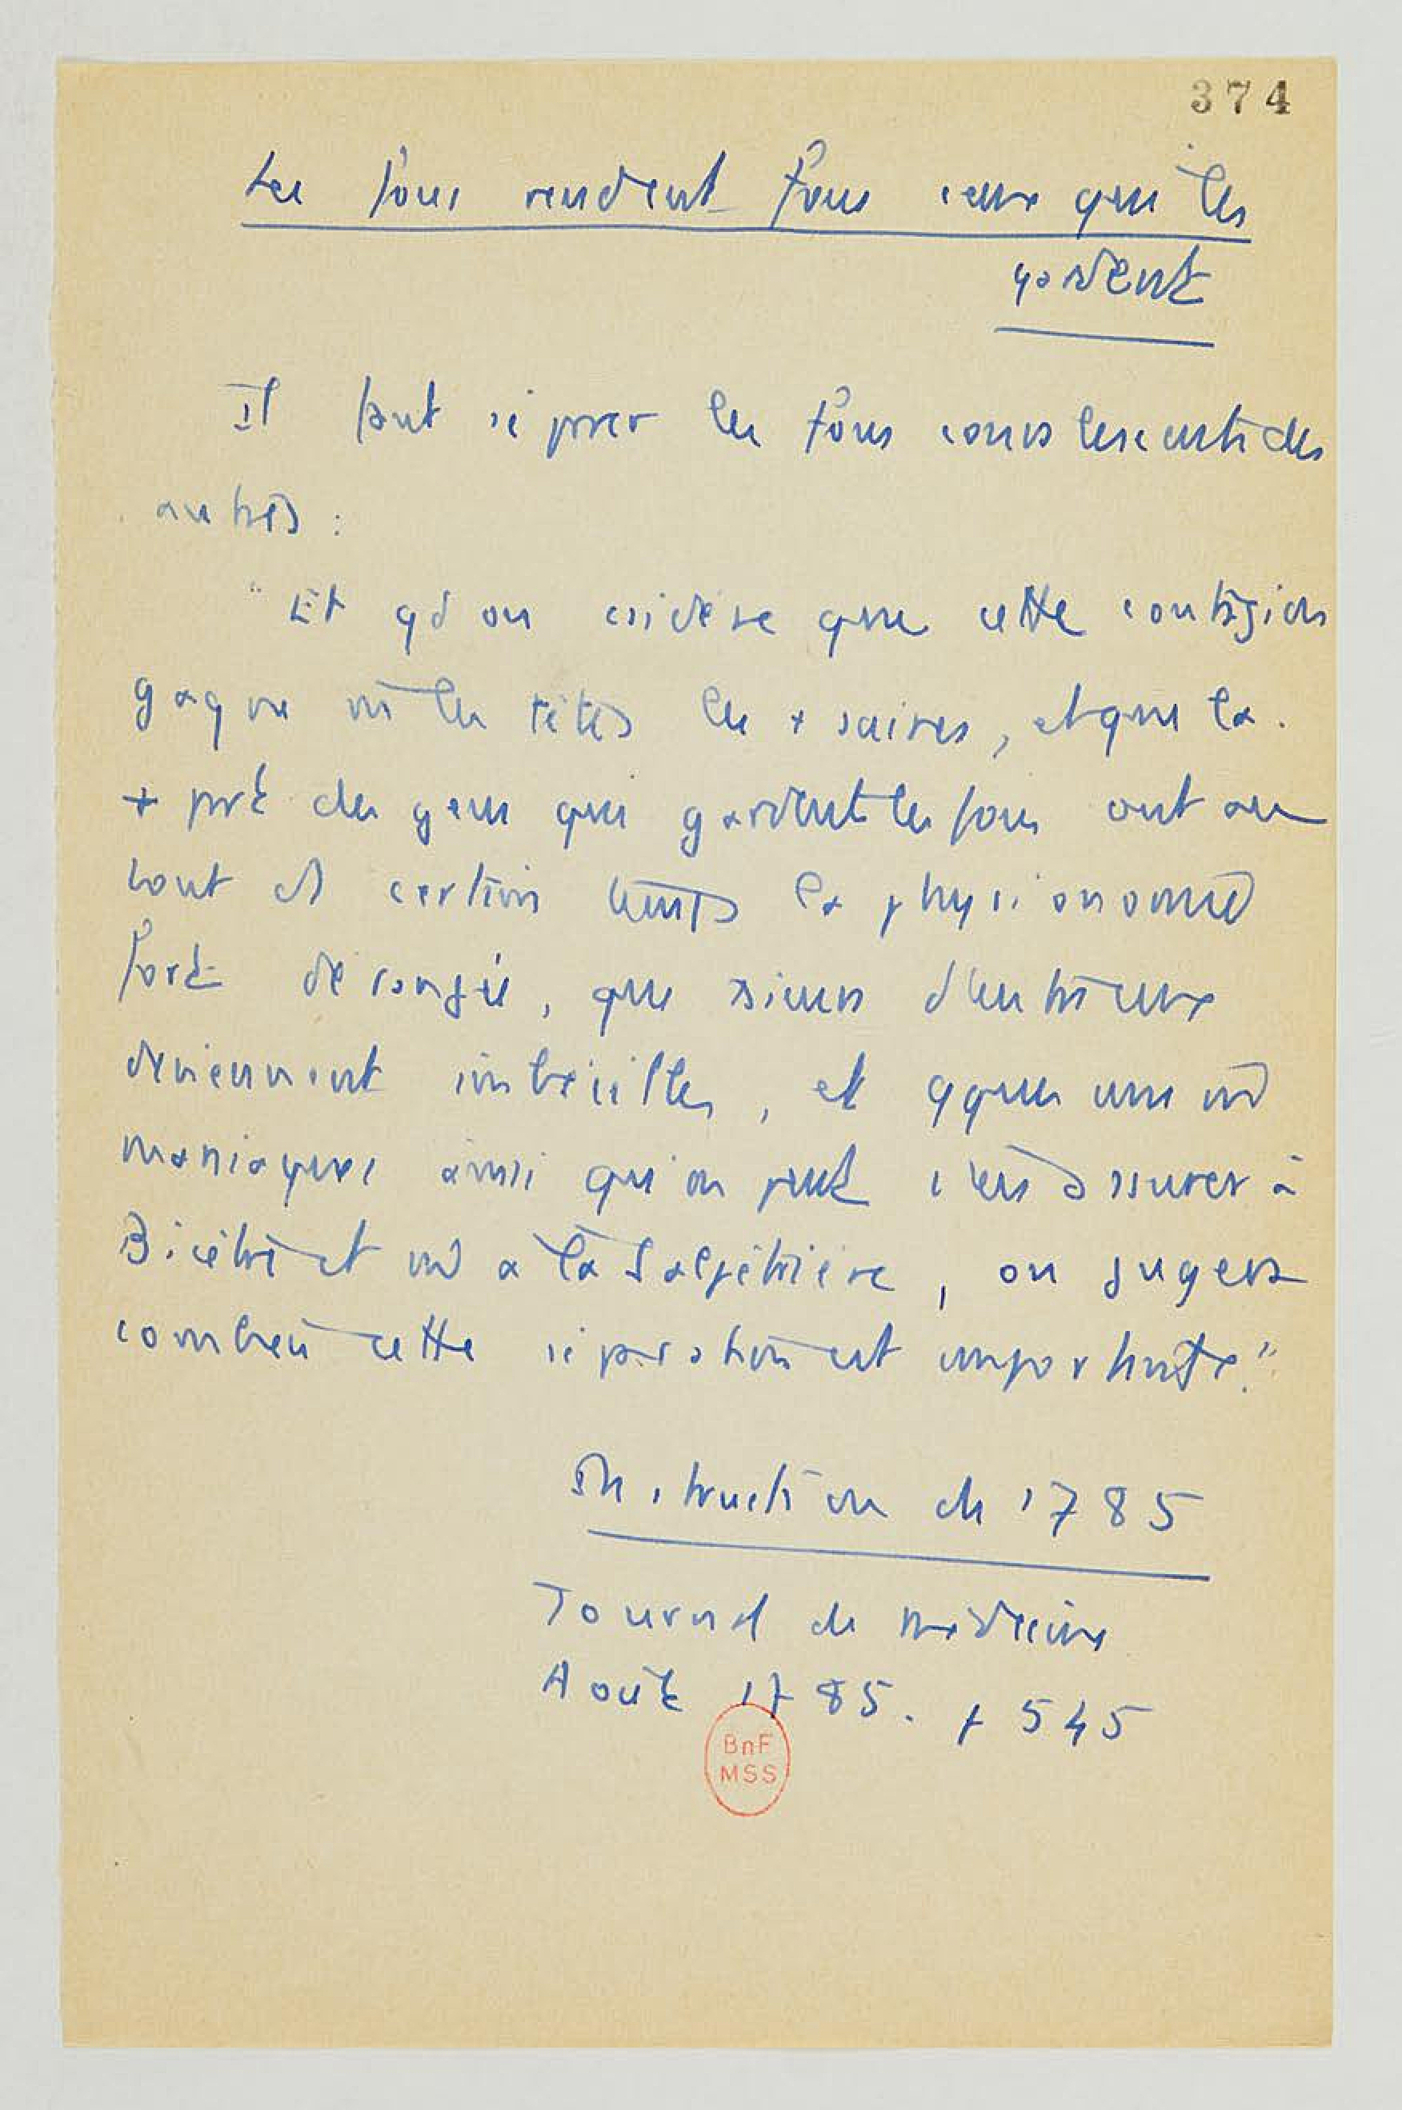 374
Les fous rendent fous ceux qui les
gardent
Il faut séparer les fous convalescents des
autres :
"Et qd on csidère que cette contagion
gagne mê les têtes les + saines, et que la
+ part des gens qui gardent les fous ont au
bout d certain temps la physionomie
fort dérangée, que +sieurs d'entre eux
deviennent imbéciles, et qques uns mê
maniaques ainsi qu'on peut s'en assurer à
Bicêtre et mê à la Salpêtrière, on jugera
combien cette séparation est importante."
Instruction de 1785
Journal de médecine
Août 1785. p 545
BnF
MSS